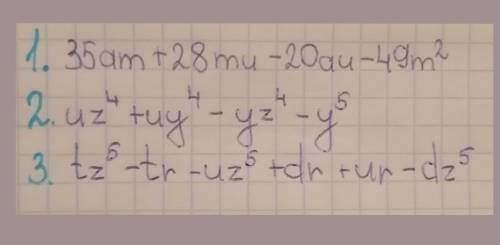 1. 35am + 28mu - 20au - 49m²
2. uz⁴ + uy⁴ - yz⁴ - y⁵
3. tz⁵ - tr - uz⁵ + dr + ur - dz⁵